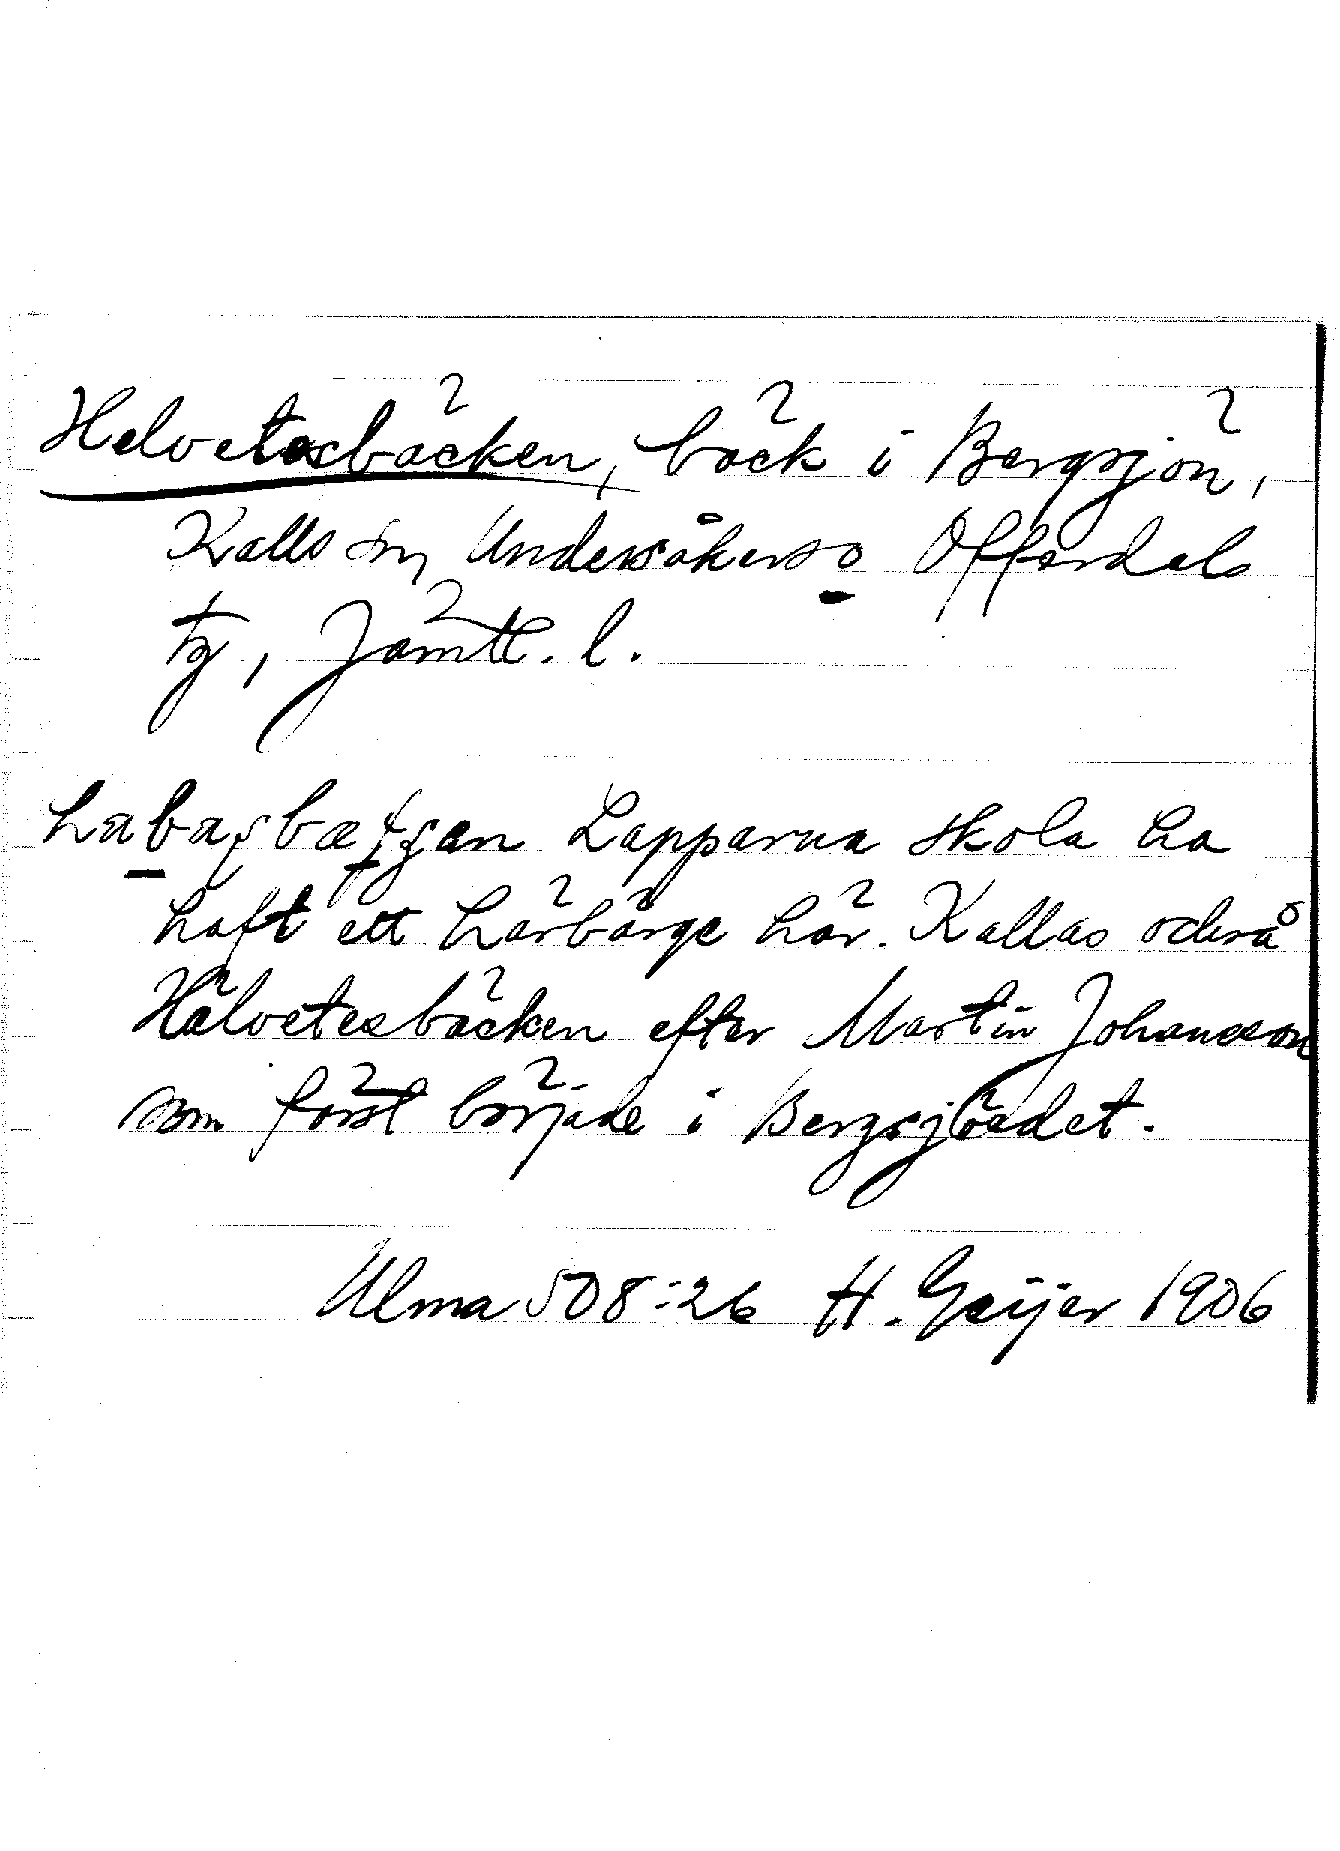 Helvetesbäcken, bäck i Bergsjön,
Kalls sn, Undersåkers o Offerdals
tg, Jämtl. l.
Lapparna skola ha
haft ett härbärge här. Kallas också
Hälvetesbäcken efter Martin Johansson
som först började i Bergsjöedet.
Ulma 508:26 H. Geijer 1906